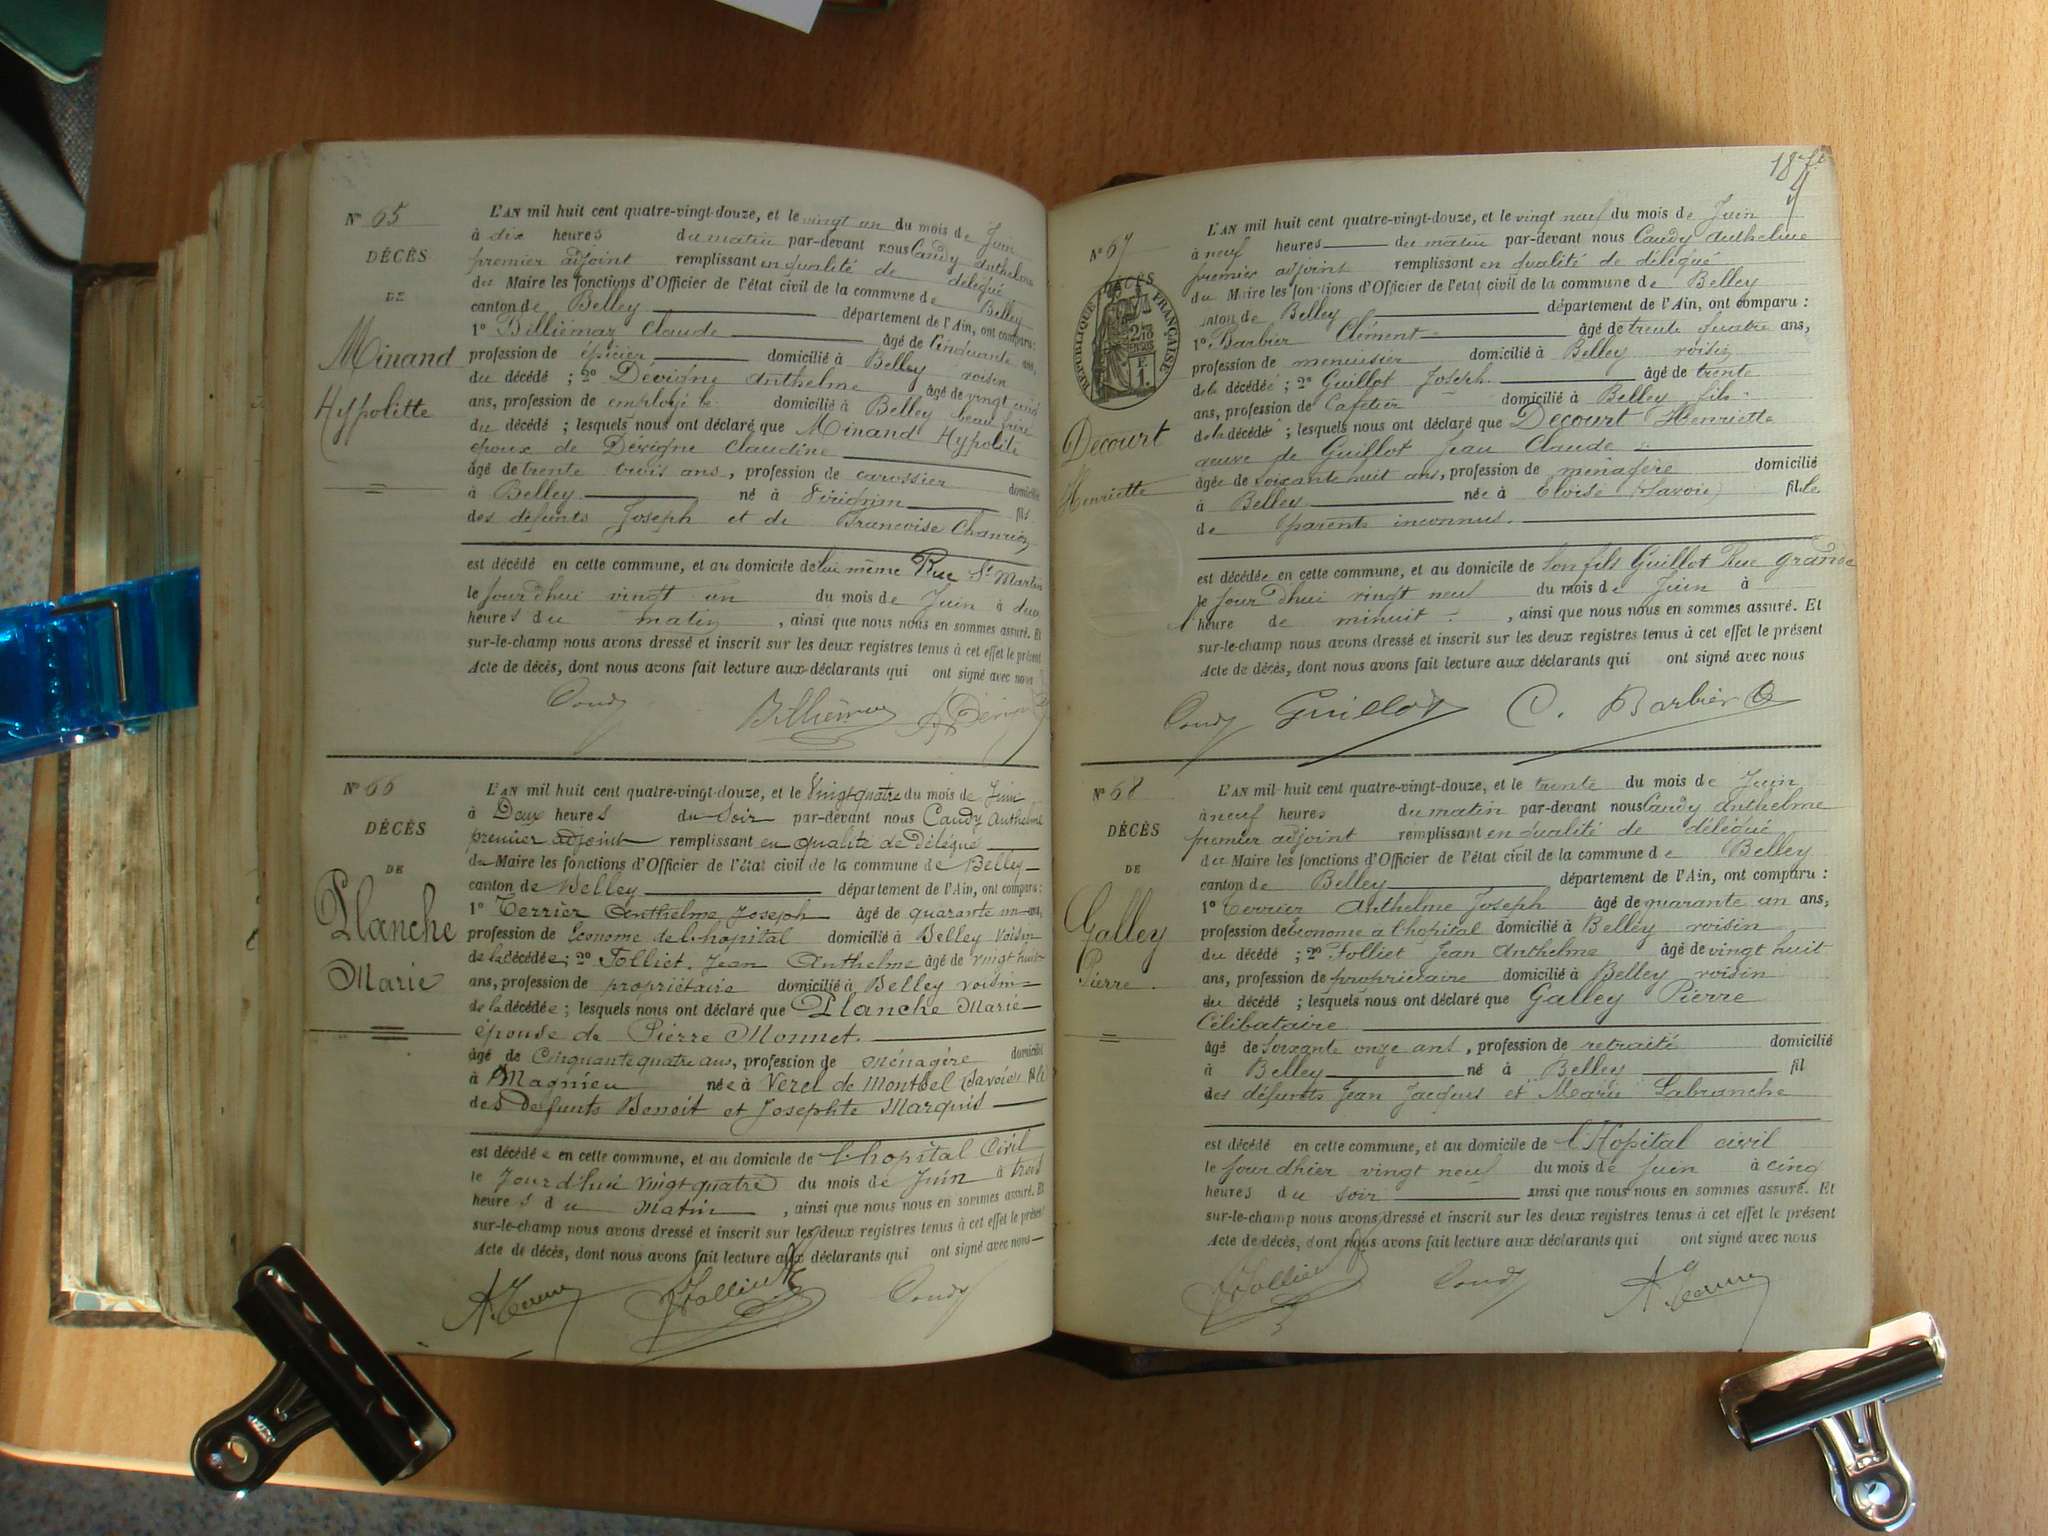 N° 65
DÉCÈS
DE
Minand
Hyppolitte
L'AN mil huit cent quatre-vingt-douze, et le vingt un du mois de Juin
à dix heures du matin par-devant nous Caudy Anthelme
premier adjoint remplissant en qualité de délégué
du Maire les fonctions d'Officier de l'état civil de la commune de Belley
canton de Belley département de l'Ain, ont comparu :
1° Billiémaz Claude âgé de Cinquante ans,
profession de épicier domicilié à Belley voisin
du décédé ; 2° Dévigne Anthelme âgé de vingt cinq
ans, profession de employé domicilié à Belley beau frère
du décédé ; lesquels nous ont déclaré que Minand Hypolite
époux de Dévigne Claudine
âgé de trente trois ans, profession de carossier domicilié
à Belley né à Virignin fils
des défunts Joseph et de Francoise
est décédé en cette commune, et au domicile de lui même Rue St Martin
le Jourdhui vingt un du mois de Juin à deux
heures du matin, ainsi que nous nous en sommes assuré. Et
sur-le-champ nous avons dressé et inscrit sur les deux registres tenus à cet effet le présent
Acte de décès, dont nous avons fait lecture aux déclarants qui ont signé avec nous
Caudy Billiémaz
N° 66
DÉCÈS
DE
Planche
Marie
L'AN mil huit cent quatre-vingt-douze, et le Vingt quatre du mois de Juin
à Deux heures du Soir par-devant nous Caudy Anthelme
premier adjoint remplissant en qualité de Délégué
du Maire les fonctions d'Officier de l'état civil de la commune de Belley
canton de Belley département de l'Ain, ont comparu :
1° Terrier Anthelme Joseph âgé de quarante un ans,
profession de Econome de l'hopital domicilié à Belley Voisin
de la décédée ; 2° Folliet Jean Anthelme âgé de vingt huit
ans, profession de propriétaire domicilié à Belley voisin
de la décédée ; lesquels nous ont déclaré que Planche Marie
épouse de Pierre Monnet
âgé de Cinquante quatre ans, profession de Ménagère domicilié
à Magnieu née à Verel de Montbel Savoie fille
des Defunts Benoit et Josephte Marquis
est décédée en cette commune, et au domicile de l'hopital Civil
le Jourdhui vingt quatre du mois de Juin à trois
heures du Matin, ainsi que nous nous en sommes assuré. Et
sur-le-champ nous avons dressé et inscrit sur les deux registres tenus à cet effet le présent
Acte de décès, dont nous avons fait lecture aux déclarants qui ont signé avec nous
Caudy
187
N° 67
DÉCÈS
RÉPUBLIQUE FRANÇAISE
Decourt
Henriette
L'AN mil huit cent quatre-vingt-douze, et le vingt neuf du mois de Juin
à neuf heures du matin par-devant nous Caudy Anthelme
premier adjoint remplissant en qualité de délégué
du Maire les fonctions d'Officier de l'état civil de la commune de Belley
canton de Belley département de l'Ain, ont comparu :
1° Barbier Clément âgé de trente quatre ans,
profession de menuisier domicilié à Belley voisin
de la décédée ; 2° Guillot Joseph âgé de trente
ans, profession de Cafetier domicilié à Belley fils
de la décédée ; lesquels nous ont déclaré que Decourt Henriette
veuve de Guillot Jean Claude
âgée de soixante huit ans, profession de ménagère domicilié
à Belley née à Eloise Savoie fille
de parents inconnus.
est décédée en cette commune, et au domicile de son fils Guillot Rue Grande
le Jour dhui vingt neuf du mois de Juin à
l'heure de minuit, ainsi que nous nous en sommes assuré. Et
sur-le-champ nous avons dressé et inscrit sur les deux registres tenus à cet effet le présent
Acte de décès, dont nous avons fait lecture aux déclarants qui ont signé avec nous
Caudy Guillot C. Barbier
N° 68
DÉCÈS
DE
Galley
Pierre
L'AN mil huit cent quatre-vingt-douze, et le trente du mois de Juin
à neuf heures du matin par-devant nous Caudy Anthelme
premier adjoint remplissant en qualité de délégué
du Maire les fonctions d'Officier de l'état civil de la commune de Belley
canton de Belley département de l'Ain, ont comparu :
1° Terrier Anthelme Joseph âgé de quarante un ans,
profession de Econome a l'hopital domicilié à Belley voisin
du décédé ; 2° Folliet Jean Anthelme âgé de vingt huit
ans, profession de propriétaire domicilié à Belley voisin
du décédé ; lesquels nous ont déclaré que Galley Pierre
Célibataire
âgé de soixante onze ans, profession de retraité domicilié
à Belley né à Belley fil
des défunts Jean Jacques et Marie Labranche
est décédé en cette commune, et au domicile de l'Hopital civil
le Jour dhier vingt neuf du mois de Juin à cinq
heures du soir ainsi que nous nous en sommes assuré. Et
sur-le-champ nous avons dressé et inscrit sur les deux registres tenus à cet effet le présent
Acte de décès, dont nous avons fait lecture aux déclarants qui ont signé avec nous
Caudy